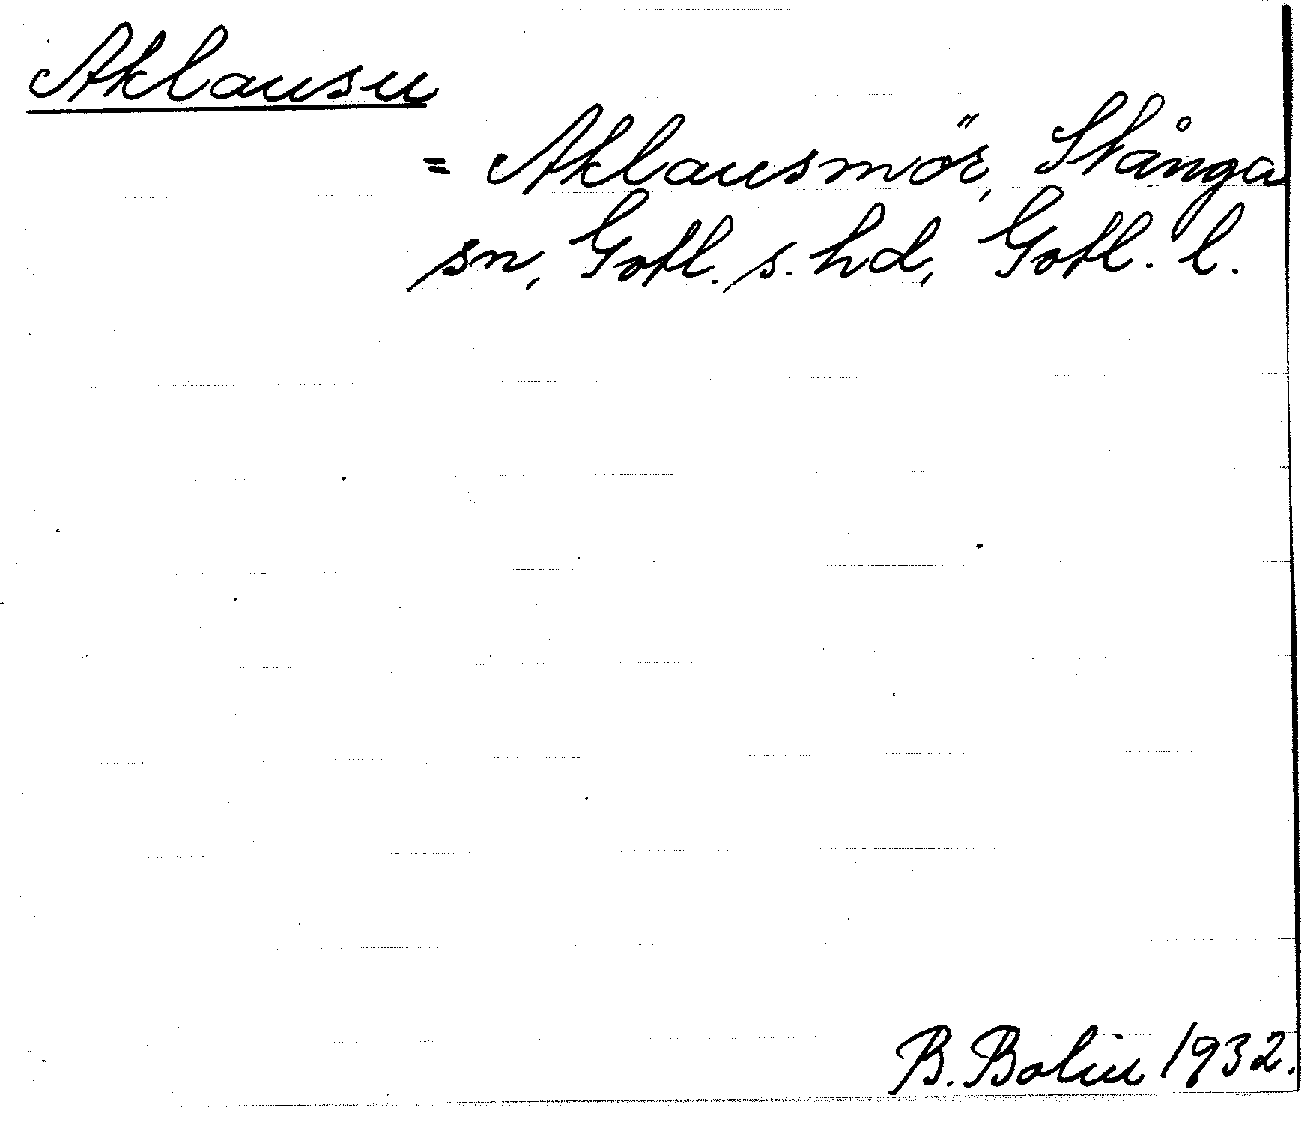 Aklausu
= Aklausmör, Stånga
sn, Gotl. s. hd, Gotl. l.
B. Bolin 1932.